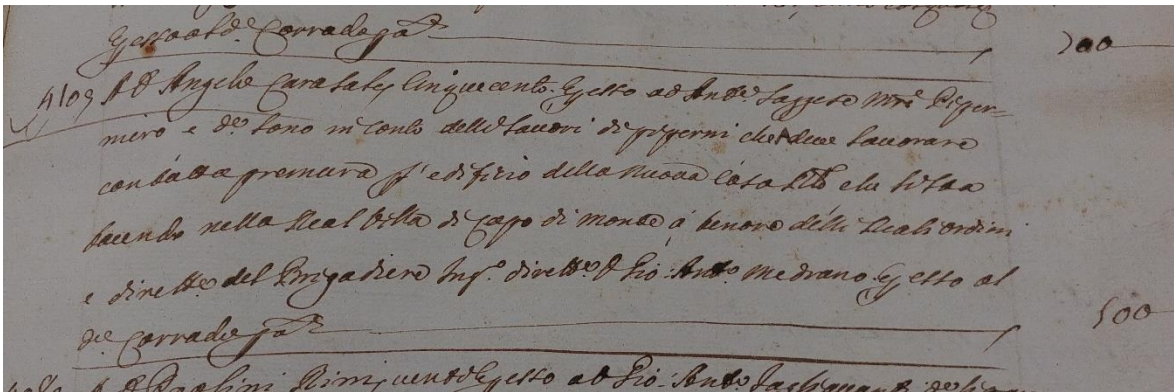 E p esso al d.º Corrado p.ta 200
4109 A D. Angelo Carasale, Cinquecento. E p esso ad And.ª Saggese M.ro Piper=
niero e d.i sono in conto delli lavori di piperni che deve lavorare
con tutta premura p l'edificio della nuova Casa R.le che si sta
facendo nella Real Villa di Capo di monte à tenore delli Reali ordini
e dirett.e del Brigadiere Ing.º dirett.e D. Gio: Ant.º Medrano. E p esso al
d.º Corrado p.ta 500
A D. Paolini E p esso ad Gio: Ant.º